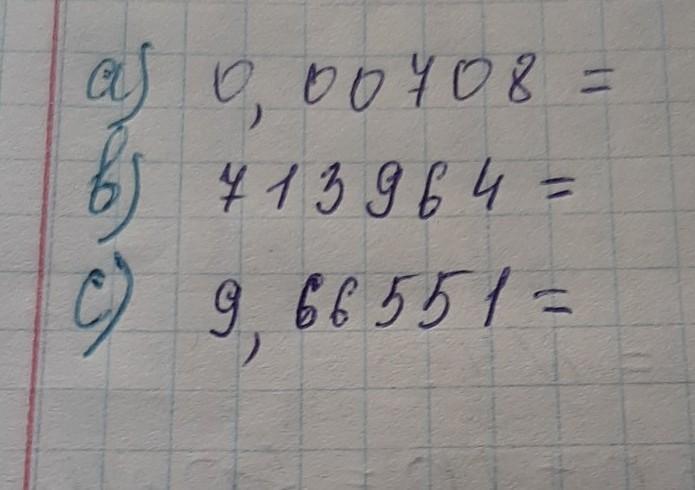 a) 0,00708 =
b) 713964 =
c) 9,66551 =